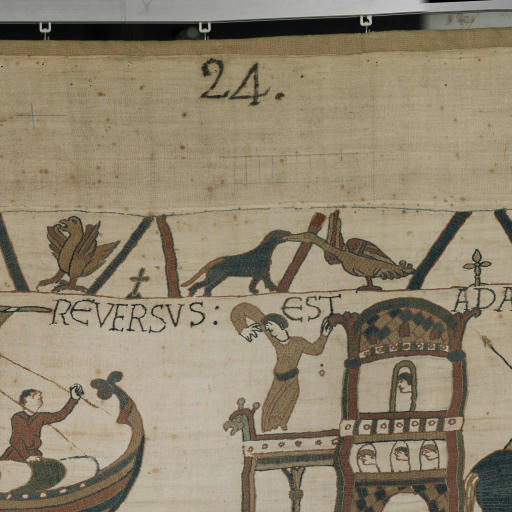 24.
REVERSVS : EST ADA